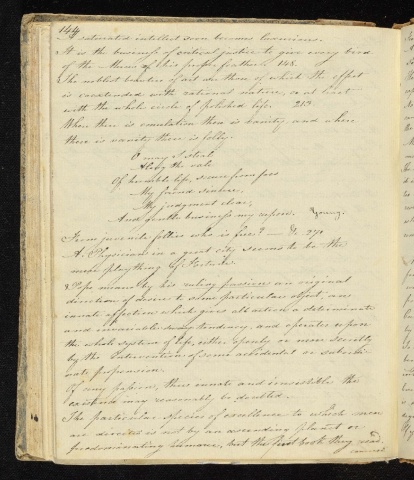 144
saturated intellect soon becomes luxurious.
It is the business of critical justice to give every bird
of the Muses his proper feather. 148.
The noblest beauties of art are those of which the effect
is coextended with rational nature, or at least
with the whole circle of polished life. 213.
Where there is emulation there is vanity, and where
there is vanity there is folly.
O may I steal
Along the vale
Of humble life, secure from foes
My friend sincere,
My judgment clear,
And gentle business my repose. Young.
From juvenile follies who is free? — D. 270
A Physician in a great city seems to be the
mere plaything of Fortune.
Pope meant by his ruling passion an original
direction of desire to some particular object, an
innate affection which gives all action a determinate
and invariable tendency, and operates upon
the whole system of life, either openly or more secretly
by the intervention of some accidental or subordi-
nate propension.
Of any passion, thus innate and irresistible the
existence may reasonably be doubted.
The particular species of excellence to which men
are directed is not by an ascending planet or
predominating humour, but the first book they read,